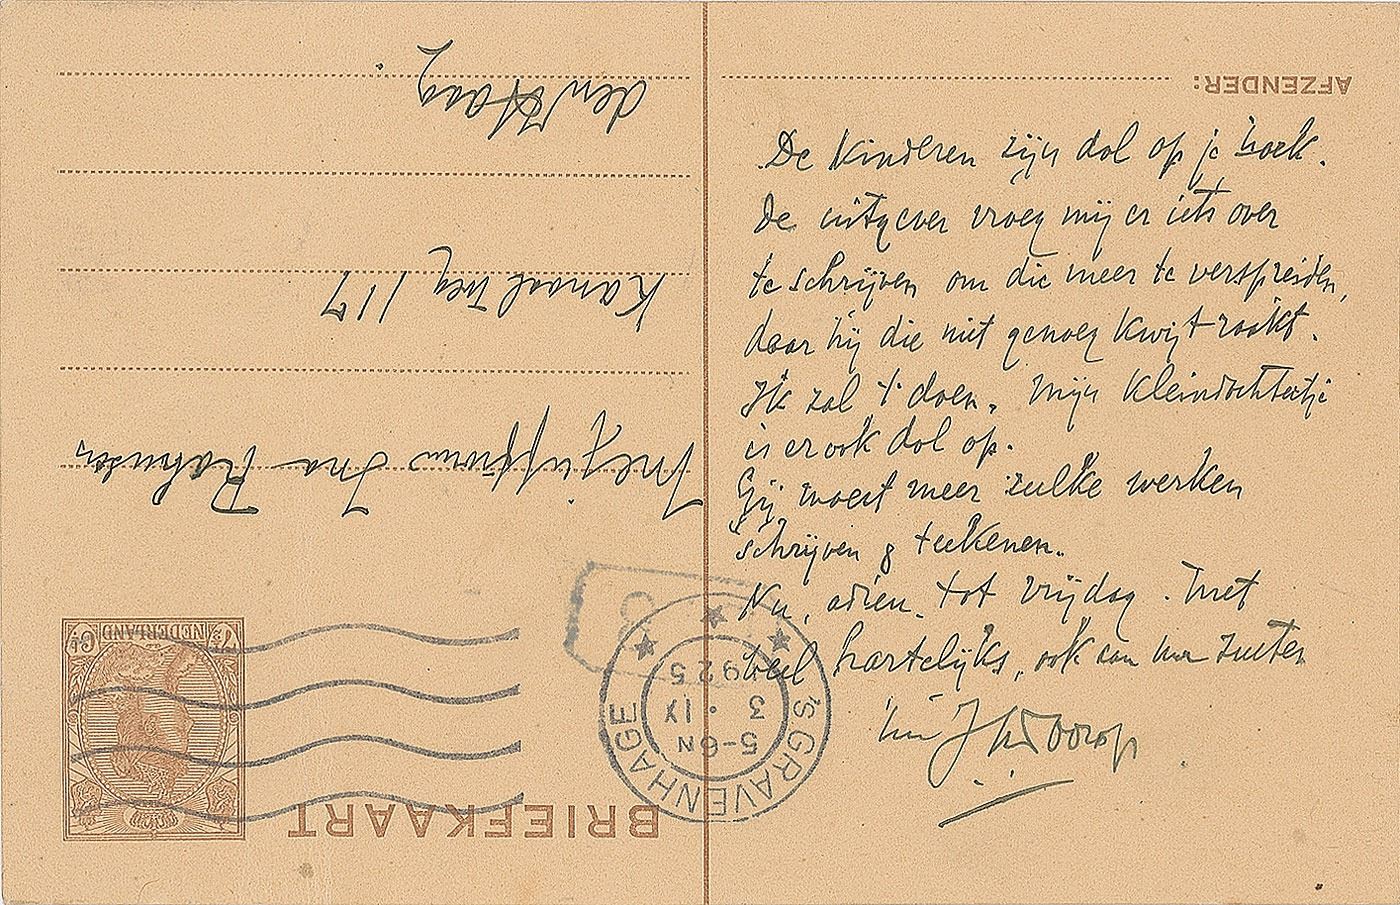 AFZENDER:
De Kinderen zijn dol op je boek.
De uitgever vroeg mij er iets over
te schrijven om die meer te verspreiden,
daar hij die niet genoeg kwijt raakt.
Ik zal 't doen. Mijn Kleindochtertje
is er ook dol op.
Gij moest meer zulke werken
schrijven & teekenen.
Nu, adieu. tot vrijdag. Met
veel hartelijks, ook aan uw zuster
JThToorop
BRIEFKAART
NEDERLAND
7½ ct
'S GRAVENHAGE
5-6N
3.IX
1925
Mejuffrouw Ina Rahusen
Kanaalweg 117
den Haag